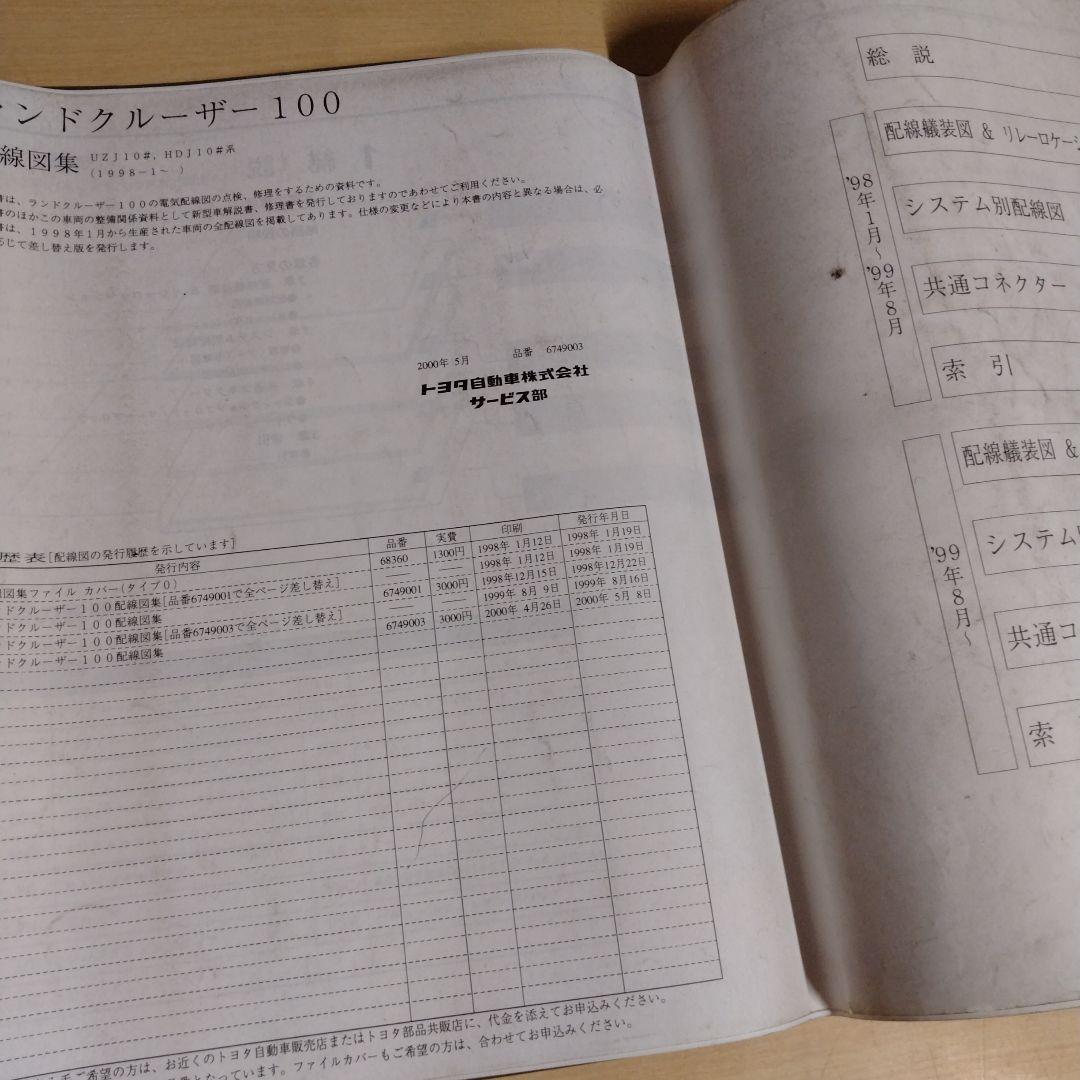 ンドクルーザー１００
線図集 ＵＺＪ１０＃，ＨＤＪ１０＃系
（１９９８－１～　）
は、ランドクルーザー１００の電気配線図の点検、修理をするための資料です。
のほかこの車両の整備関係資料として新型車解説書、修理書を発行しておりますのであわせてご利用ください。
は、１９９８年１月から生産された車両の全配線図を掲載してあります。仕様の変更などにより本書の内容と異なる場合は、必
じて差し替え版を発行します。
2000年 5月　品番　6749003
トヨタ自動車株式会社
サービス部
歴 表［配線図の発行履歴を示しています］
発行内容 品番 実費 印刷 発行年月日
図集ファイル カバー（タイプ０） 68360 1300円 1998年 1月12日 1998年 1月19日
ドクルーザー１００配線図集［品番6749001で全ページ差し替え］ —— —— 1998年 1月12日 1998年 1月19日
ドクルーザー１００配線図集 6749001 3000円 1998年12月15日 1998年12月22日
ドクルーザー１００配線図集［品番6749003で全ページ差し替え］ —— —— 1999年 8月 9日 1999年 8月16日
ドクルーザー１００配線図集 6749003 3000円 2000年 4月26日 2000年 5月 8日
ご希望の方は、お近くのトヨタ自動車販売店またはトヨタ部品共販店に、代金を添えてお申込みください。
となっています。ファイルカバーもご希望の方は、合わせてお申込みください。
総　説
'98年1月～'99年8月
配線艤装図 ＆ リレーロケーシ
システム別配線図
共通コネクター
索　引
'99年8月～
配線艤装図 ＆
システム
共通コネ
索